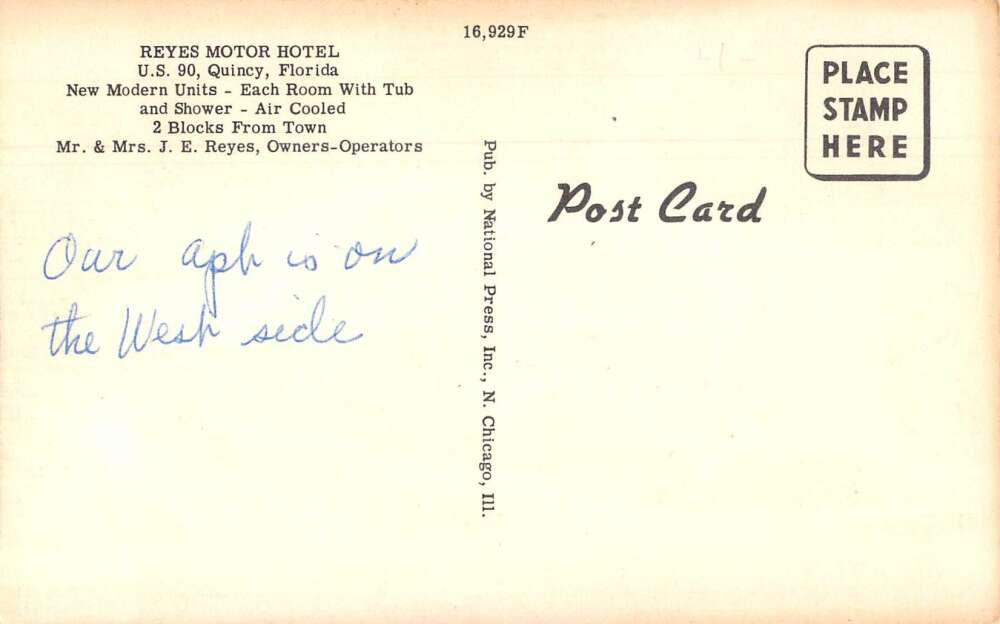 16,929F
REYES MOTOR HOTEL
U.S. 90, Quincy, Florida
New Modern Units - Each Room With Tub
and Shower - Air Cooled
2 Blocks From Town
Mr. & Mrs. J. E. Reyes, Owners-Operators
Our apt is on
the West side
Pub. by National Press, Inc., N. Chicago, Ill.
Post Card
PLACE
STAMP
HERE